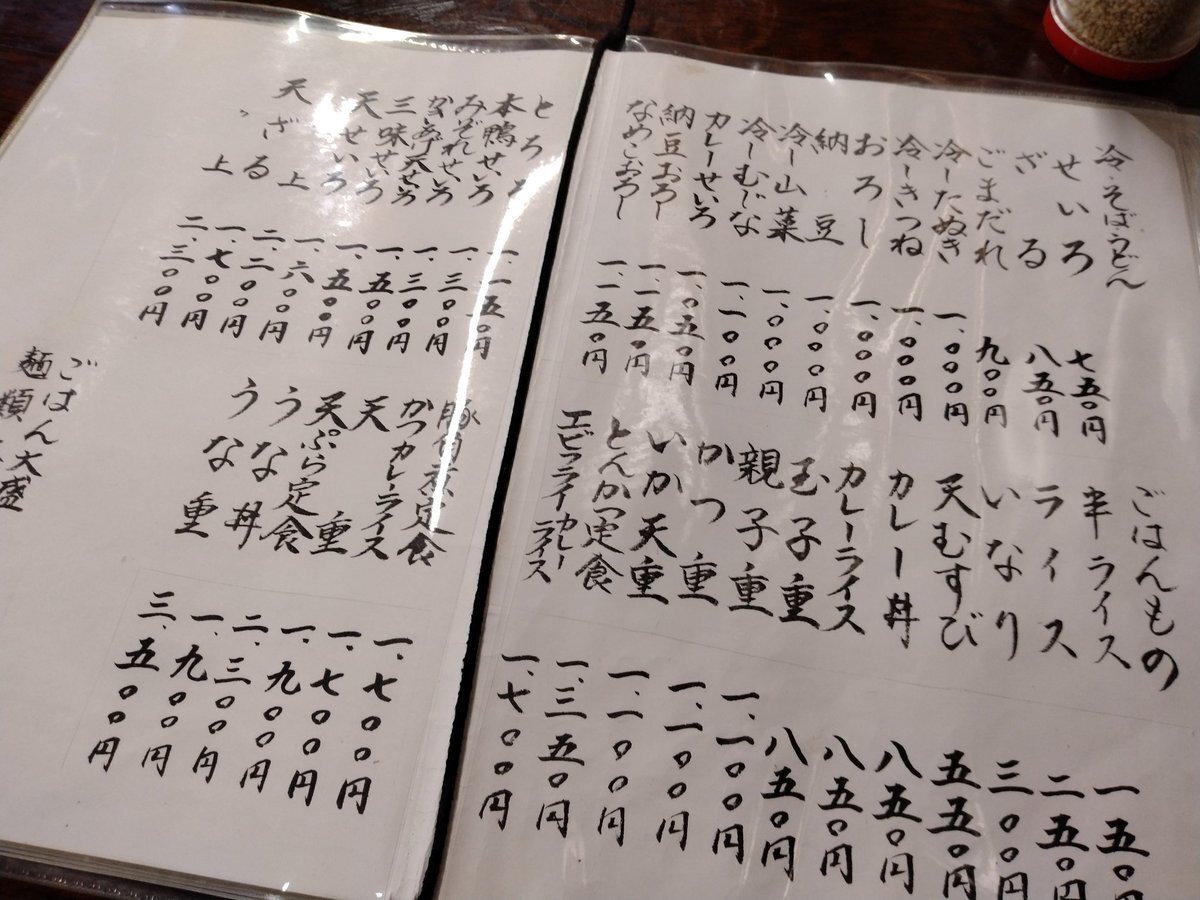 冷・そば・うどん
せいろ 七五〇円
ざる 八五〇円
ごまだれ 九〇〇円
冷ーたぬき 一、〇〇〇円
冷ーきつね 一、〇〇〇円
おろし 一、〇〇〇円
納豆 一、〇〇〇円
冷ー山菜 一、〇〇〇円
冷ーむじな 一、一〇〇円
カレーせいろ 一、〇五〇円
納豆おろし 一、一五〇円
なめこおろし 一、一五〇円
ごはんもの
半ライス 一五〇円
ライス 二五〇円
いなり 三〇〇円
天むすび 五五〇円
カレー丼 八五〇円
カレーライス 八五〇円
玉子重 八五〇円
親子重 一、一〇〇円
かつ重 一、一〇〇円
いか天重 一、一〇〇円
とんかつ定食 一、三五〇円
エビフライカレーライス 一、七〇〇円
とろろ 一、一五〇円
本鴨せいろ 一、三〇〇円
みぞれせいろ 一、三〇〇円
天せいろ 一、五〇〇円
三味せいろ 一、五〇〇円
天せいろ 一、六〇〇円
上 二、二〇〇円
天ざる 一、七〇〇円
〃 上 二、三〇〇円
豚角煮定食 一、七〇〇円
かつカレーライス 一、七〇〇円
天重 一、九〇〇円
天ぷら定食 二、三〇〇円
うな丼 一、九〇〇円
うな重 三、五〇〇円
ごはん大盛
麺類